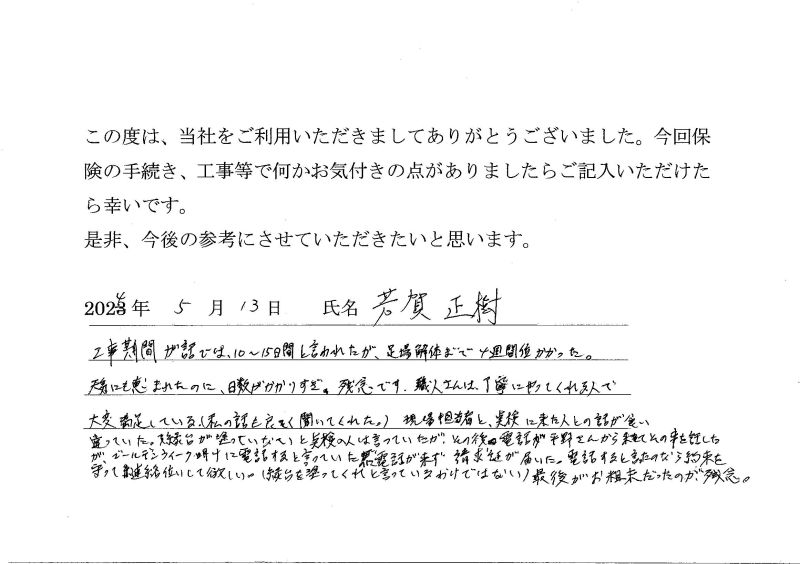 この度は、当社をご利用いただきましてありがとうございました。今回保
険の手続き、工事等で何かお気付きの点がありましたらご記入いただけた
ら幸いです。
是非、今後の参考にさせていただきたいと思います。
2024年 5月13日 氏名 芳賀 正樹
工事期間が話では、10～15日間と言われたが、足場解体まで4週間位かかった。
天候にも恵まれたのに、日数がかかりすぎ。残念です。職人さんは、丁寧にやってくれる人で
大変満足している(私の話も良く聞いてくれた。) 現場担当者と、点検に来た人との話が食い
違っていた。縁台が塗っていないと点検の人は言っていたが、その後電話が平野さんから来てその事を話した
が、ゴールデンウィーク明けに電話すると言っていたが電話が来ず 請求証が届いた。電話すると言ったのなら約束を
守って連絡位いして欲しい。(縁台を塗ってくれと言っているわけではない) 最後がお粗末だったのが残念。